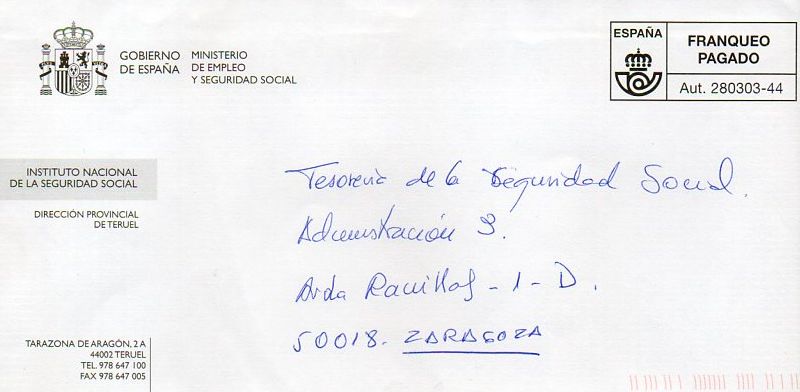 GOBIERNO
DE ESPAÑA
MINISTERIO
DE EMPLEO
Y SEGURIDAD SOCIAL
ESPAÑA
FRANQUEO
PAGADO
Aut. 280303-44
INSTITUTO NACIONAL
DE LA SEGURIDAD SOCIAL
DIRECCIÓN PROVINCIAL
DE TERUEL
Tesoreria de la Seguridad Social.
Administración 3.
Avda Ranillas - 1 - D.
50018. ZARAGOZA
TARAZONA DE ARAGÓN, 2 A
44002 TERUEL
TEL. 978 647 100
FAX 978 647 005